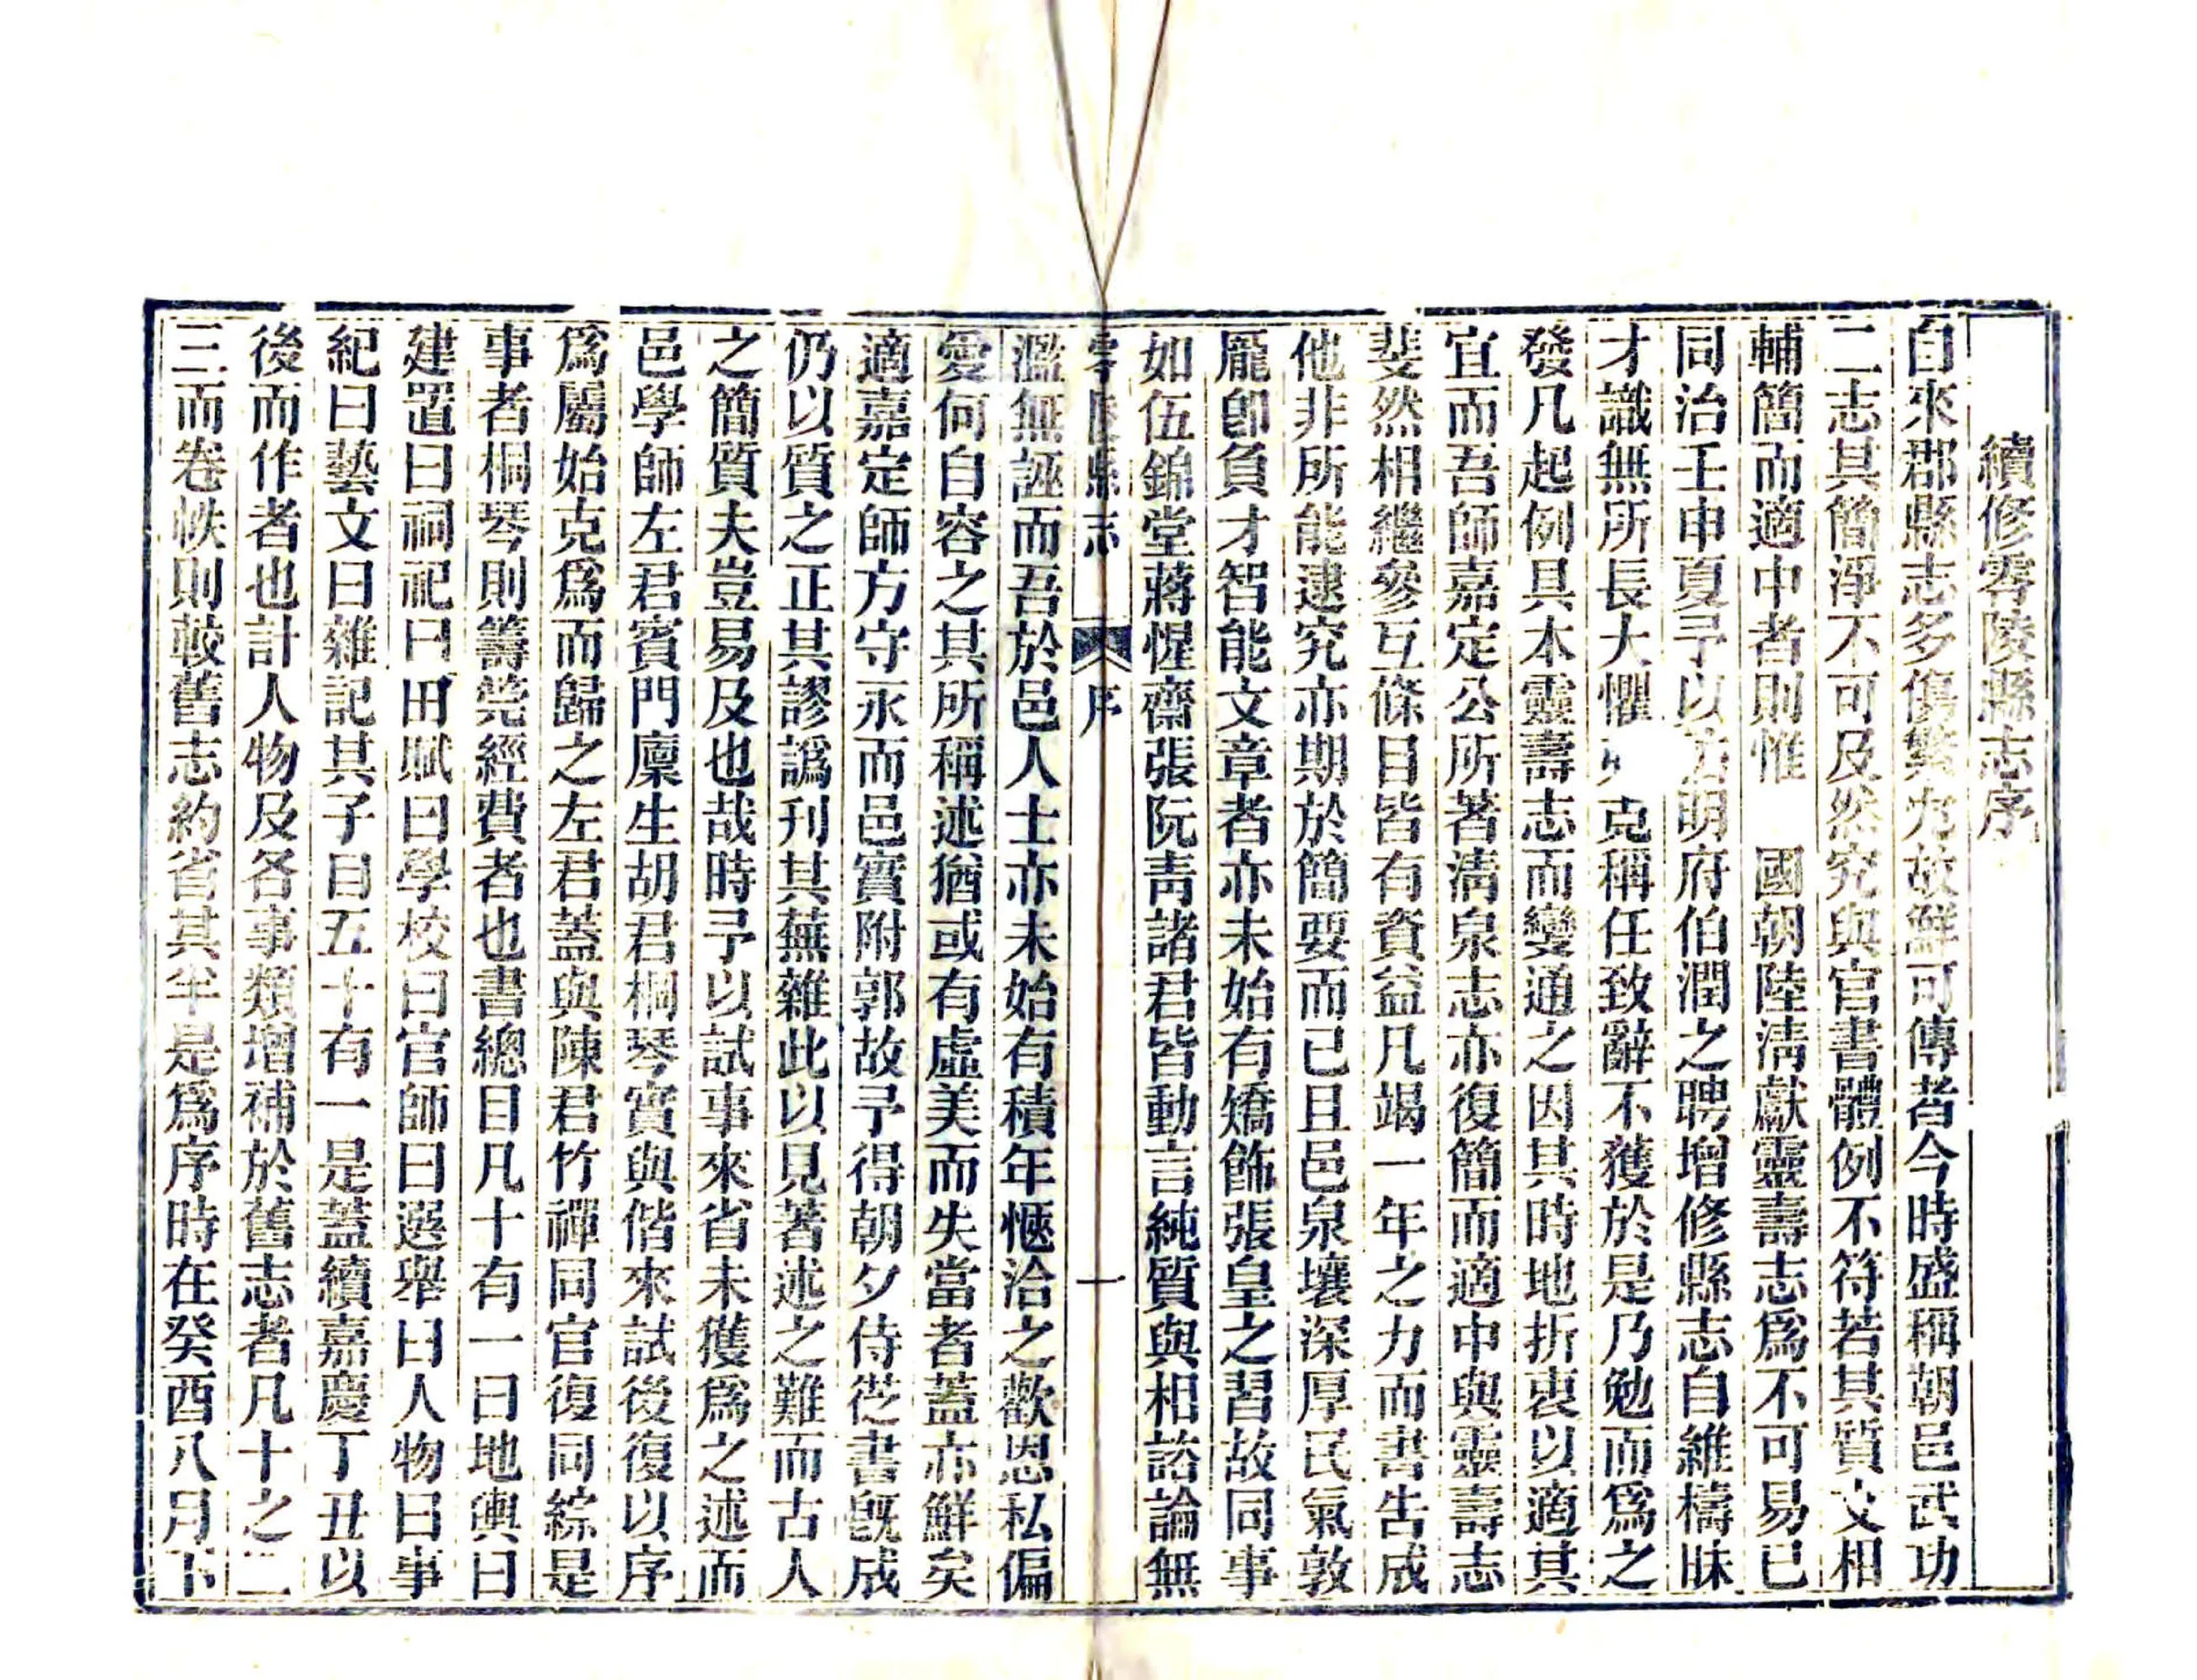 續修零陵縣志序
自來郡縣志多傷繁冗故鮮可傳者今時盛稱朝邑武功
二志其簡淨不可及然究與官書體例不符若其質文相
輔簡而適中者則惟 國朝陸淸獻靈壽志爲不可易已
同治壬申夏予以 明府伯潤之聘增修縣志自維檮昧
才識無所長大懼 克稱任致辭不獲於是乃勉而爲之
發凡起例具本靈壽志而變通之因其時地折衷以適其
宜而吾師嘉定公所著淸泉志亦復簡而適中與靈壽志
斐然相繼參互條目皆有資益凡竭一年之力而書吿成
他非所能逮究亦期於簡要而已且邑泉壤深厚民氣敦
龎卽負才智能文章者亦未始有矯飾張皇之習故同事
如伍錦堂蔣惺齋張阮靑諸君皆動言純質與相諮論無
零陵縣志 序 一
濫無誣而吾於邑人士亦未始有積年愜洽之歡恩私偏
愛何自容之其所稱述猶或有虛美而失當者蓋亦鮮矣
適嘉定師方守永而邑實附郭故予得朝夕侍從書旣成
仍以質之正其謬譌刊其蕪雜此以見著述之難而古人
之簡質夫豈易及也哉時予以試事來省未獲爲之述而
邑學師左君賓門廩生胡君桐琴實與偕來試後復以序
爲屬始克爲而歸之左君蓋與陳君竹禪同官復同綜是
事者桐琴則籌筦經費者也書總目凡十有一曰地輿曰
建置曰祠祀曰田賦曰學校曰官師曰選舉曰人物曰事
紀曰藝文曰雜記其子目五十有一是蓋續嘉慶丁丑以
後而作者也計人物及各事類增補於舊志者凡十之二
三而卷帙則較舊志約省其半是爲序時在癸酉八月下